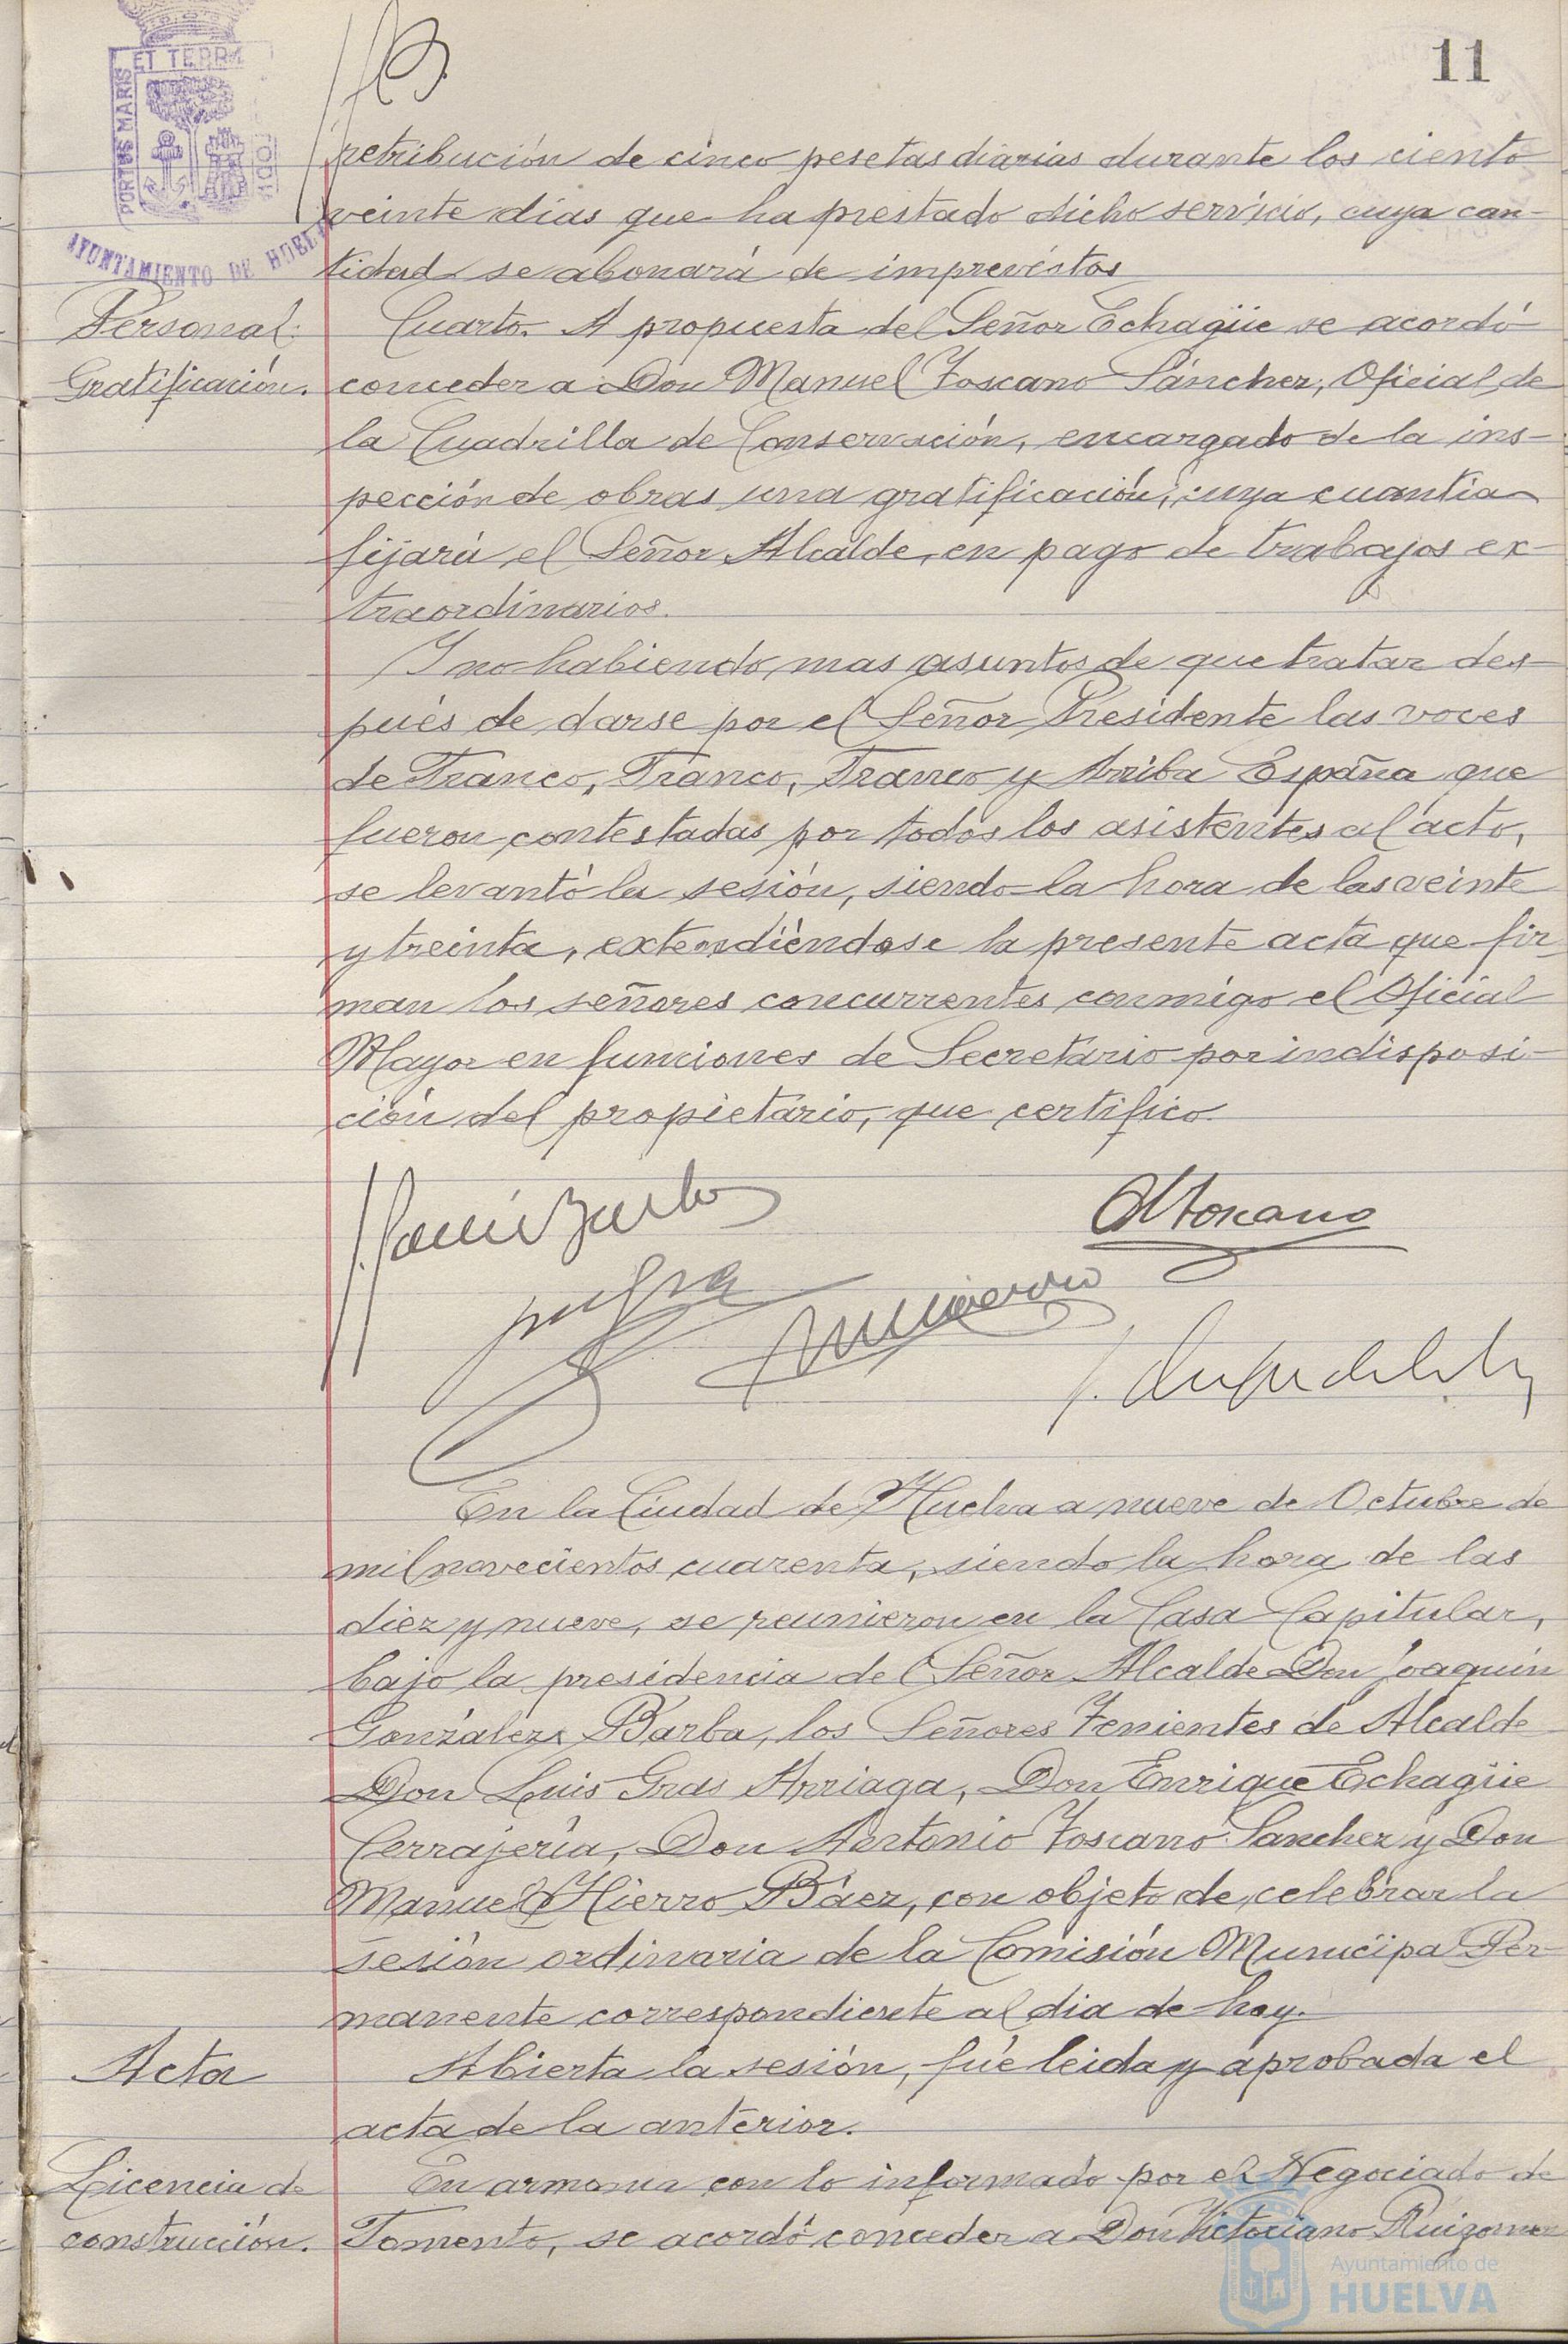 11
PORTUS MARIS
ET TERRÆ
AYUNTAMIENTO DE HUELVA
retribución de cinco pesetas diarias durante los ciento
veinte días que ha prestado dicho servicio, cuya can-
tidad se abonará de imprevistos
Personal.
Gratificación.
Cuarto.- A propuesta del Señor Echagüe se acordó
conceder a Don Manuel Toscano Sánchez, Oficial de
la Cuadrilla de Conservación, encargado de la ins-
pección de obras una gratificación, cuya cuantia
fijará el Señor Alcalde, en pago de trabajos ex-
traordinarios.
Y no habiendo mas asuntos de que tratar des-
pués de darse por el Señor Presidente las voces
de Franco, Franco, Franco y Arriba España que
fueron contestadas por todos los asistentes al acto,
se levantó la sesión, siendo la hora de las veinte
y treinta, extendiéndose la presente acta que fir-
man los señores concurrentes conmigo el Oficial
Mayor en funciones de Secretario por indisposi-
ción del propietario, que certifico.
A Toscano
En la Ciudad de Huelva a nueve de Octubre de
mil novecientos cuarenta, siendo la hora de las
diez y nueve, se reunieron en la Casa Capitular,
bajo la presidencia del Señor Alcalde Don Joaquín
González Barba, los Señores Tenientes de Alcalde
Don Luis Gras Arriaga, Don Enrique Echagüe
Cerrajería, Don Antonio Toscano Sanchez y Don
Manuel Hierro Báez, con objeto de celebrar la
sesión ordinaria de la Comisión Municipal Per-
manente correspondiente al dia de hoy.
Acta
Abierta la sesión, fué leida y aprobada el
acta de la anterior.
Licencia de
construcción.
En armonia con lo informado por el Negociado de
Fomento, se acordó conceder a Don Victoriano Ruizgomez
Ayuntamiento de
HUELVA